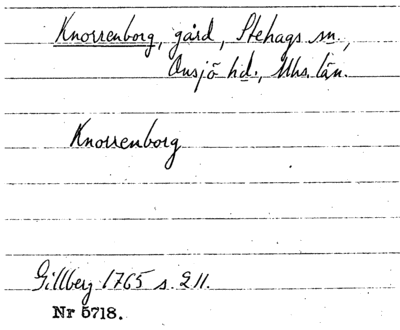 Knorrenborg, gård, Stehags sn.,
Onsjö hd., Mhs. län.
Knorrenborg
Gillberg 1765 s. 211.
Nr 5718.